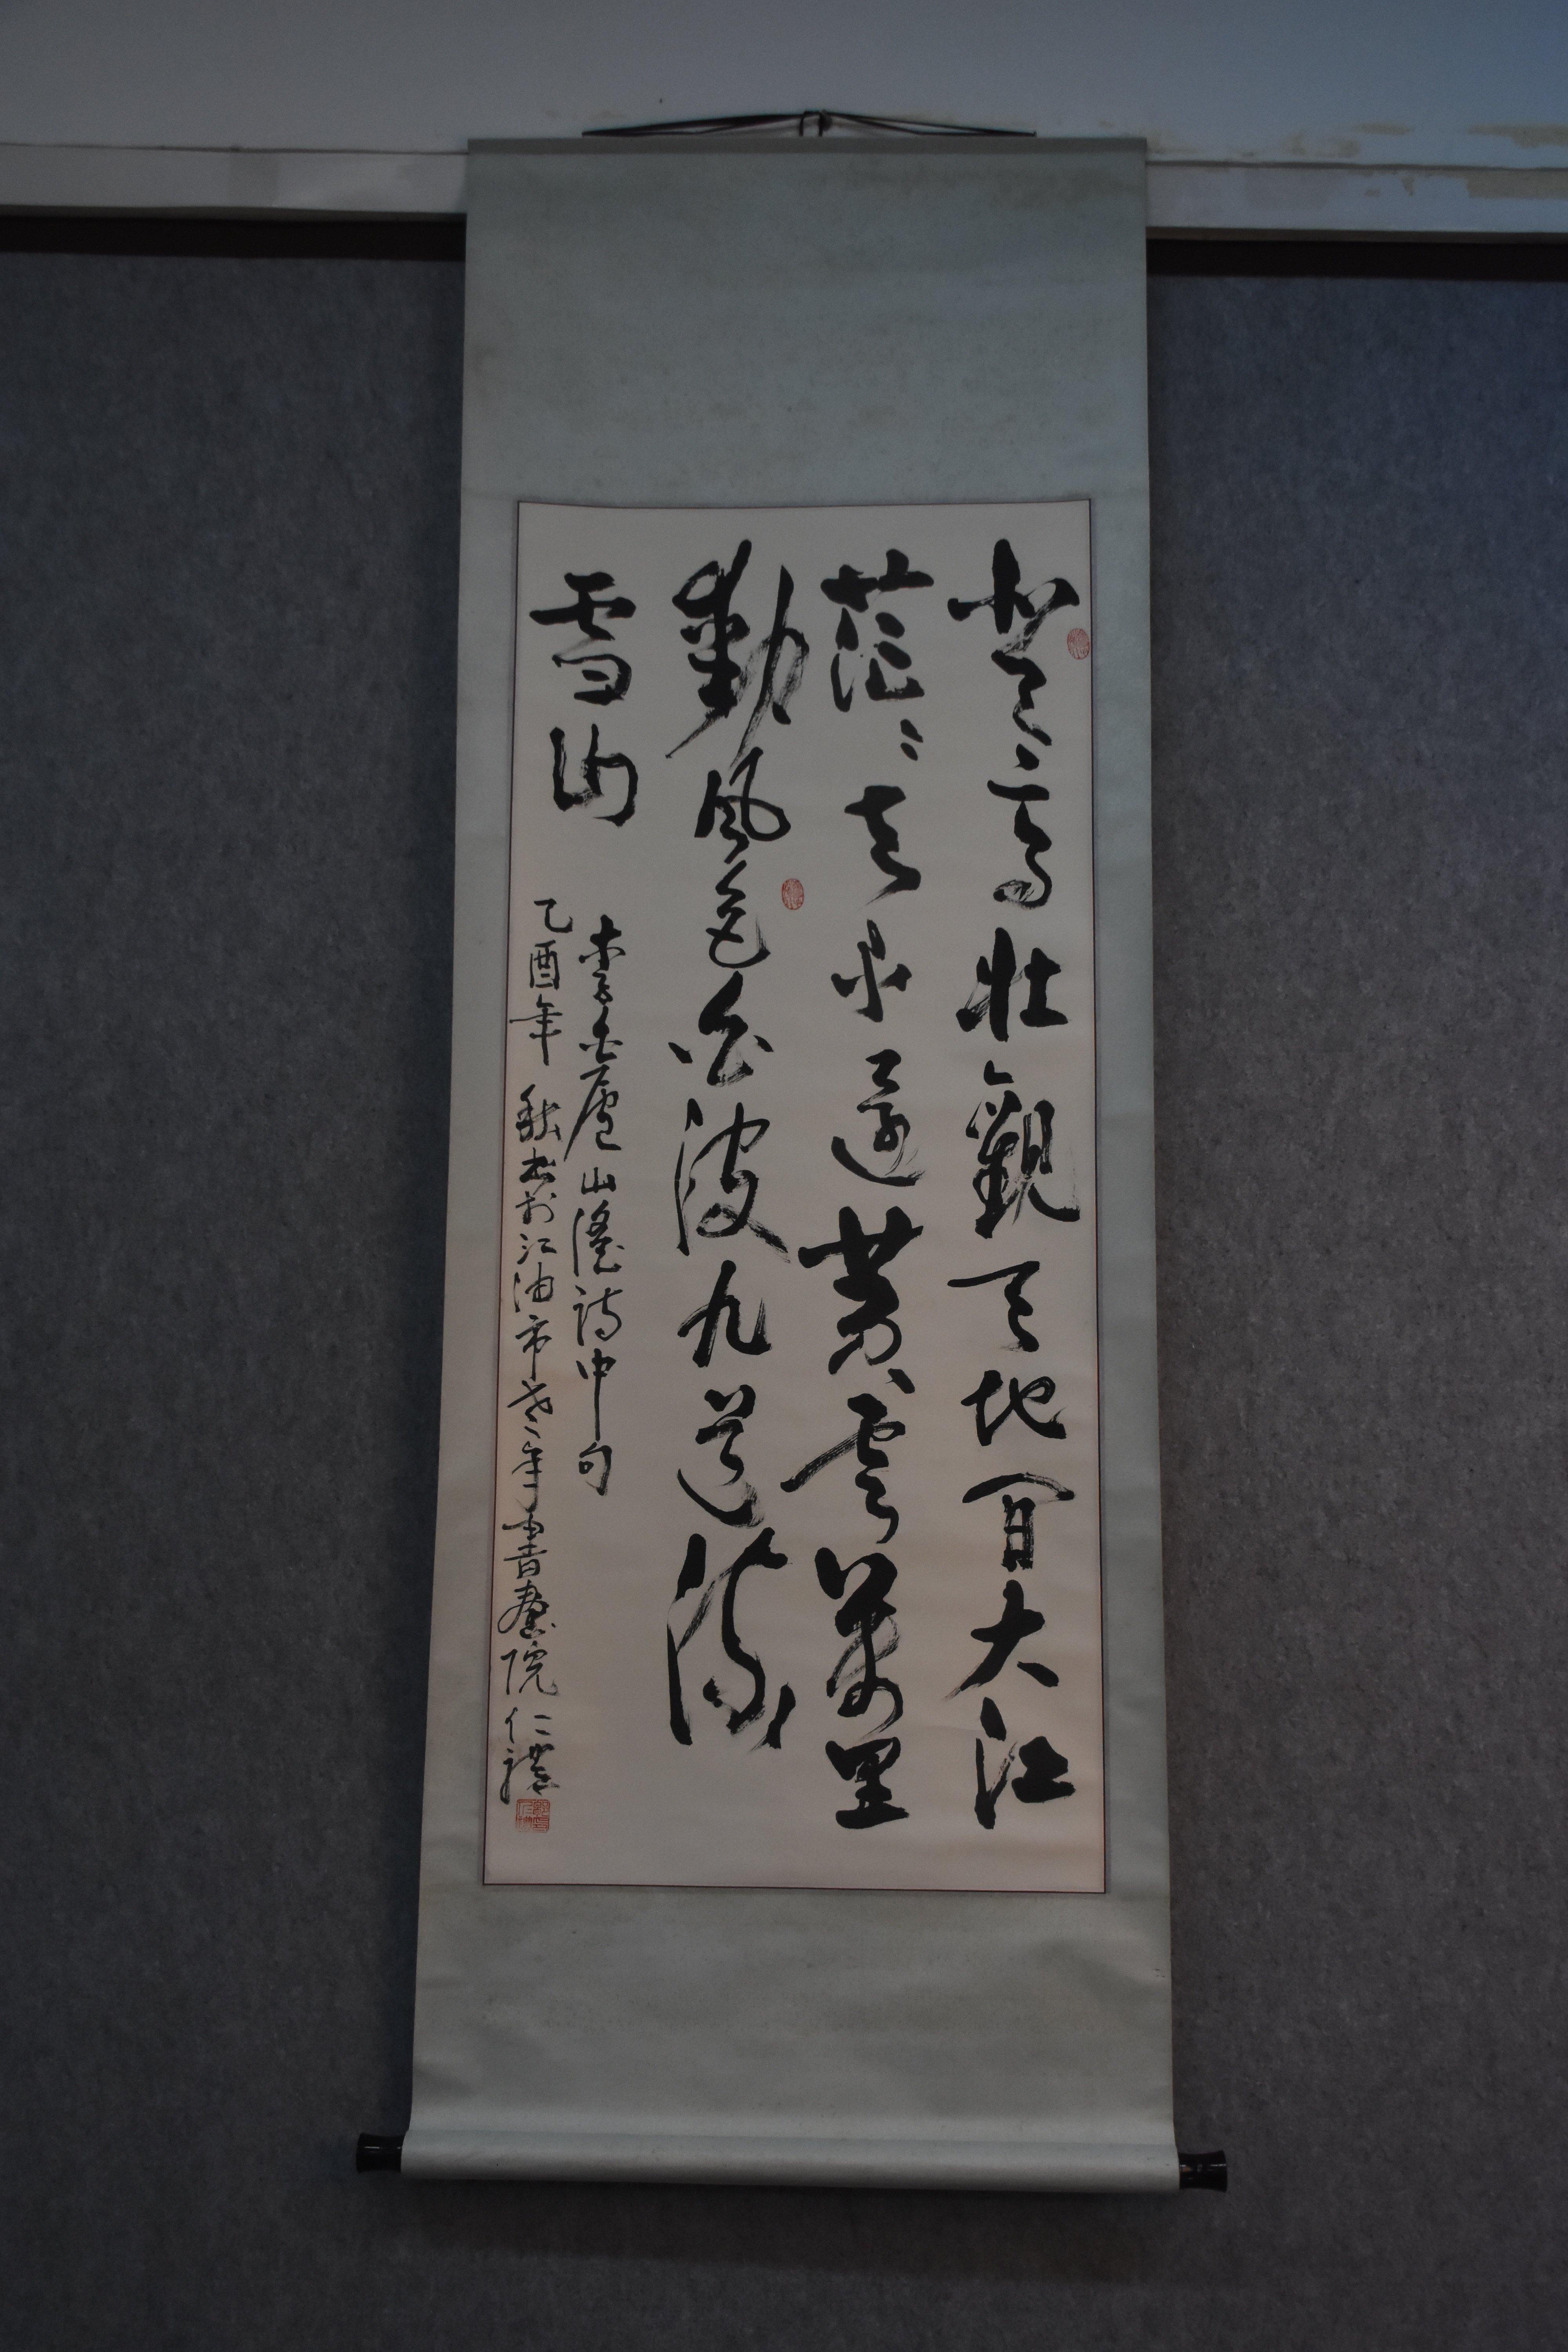 登高壯觀天地間大江
茫々去不還黃雲萬里
動風色白波九道流
雪山
李白廬山謠詩中句
乙酉年秋書於江油市老年書畫院仁禮